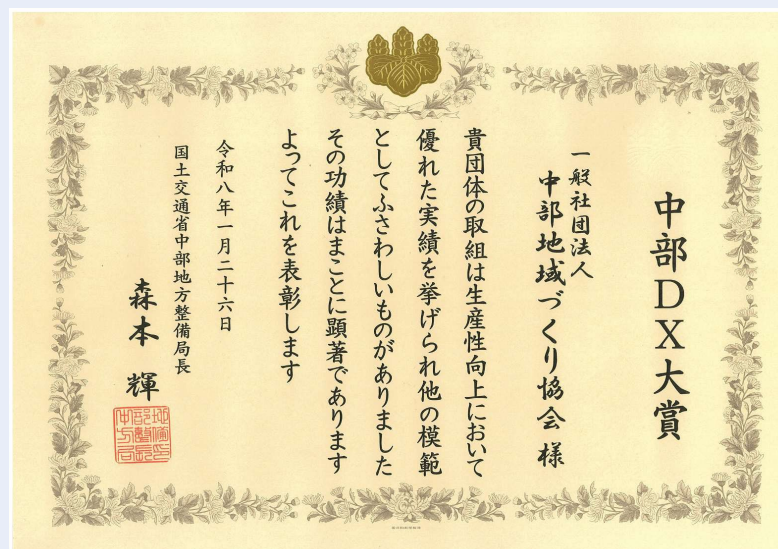 中部DX大賞
一般社団法人
中部地域づくり協会 様
貴団体の取組は生産性向上において
優れた実績を挙げられ他の模範
としてふさわしいものがありました
その功績はまことに顕著であります
よってこれを表彰します
令和八年一月二十六日
国土交通省中部地方整備局長
森本 輝